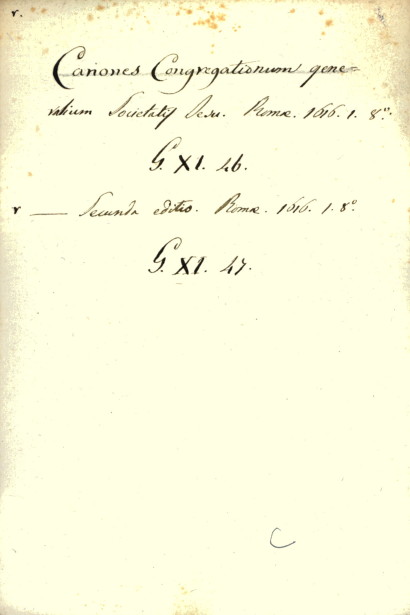 r.
Canones Congregationum gene=
ralium Societatis Jesu. Romæ. 1616. 1. 8.º
G. XI. 46.
r — Secunda editio. Romæ. 1616. 1. 8º.
G. XI. 47.
C